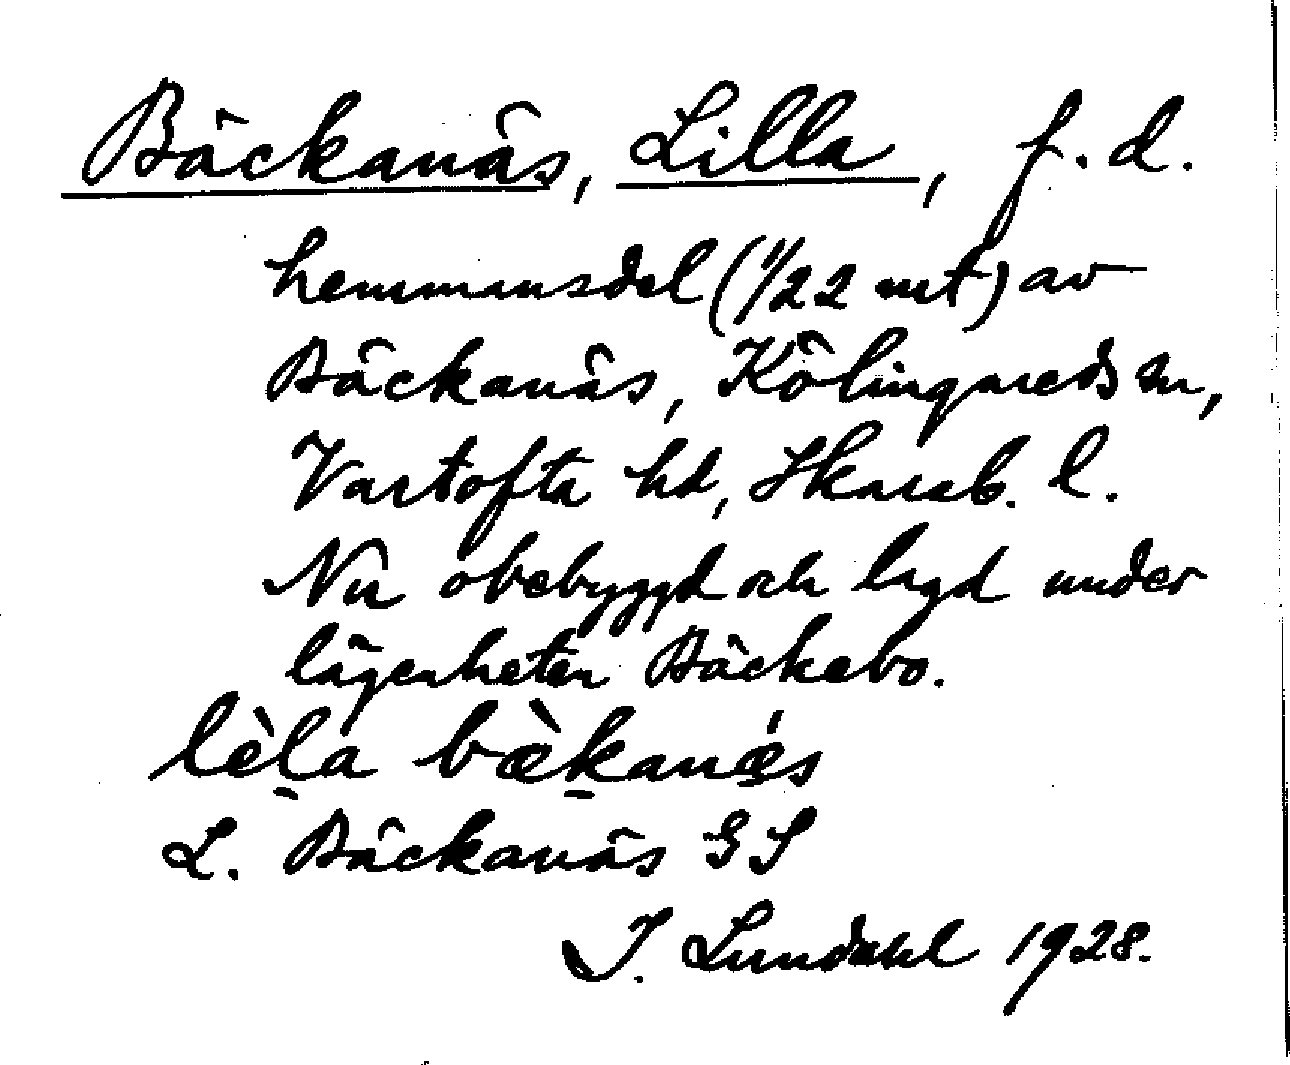 Bäckanäs, Lilla, f.d.
hemmansdel (1/22 mt) av
Bäckanäs, Kölingareds sn,
Vartofta hd, Skarab. l.
Nu obebyggd och lagd under
lägenheten Bäckebo.
lèl̠a bæ̀k̠anǽs
L. Bäckanäs GS
I. Lundahl 1928.